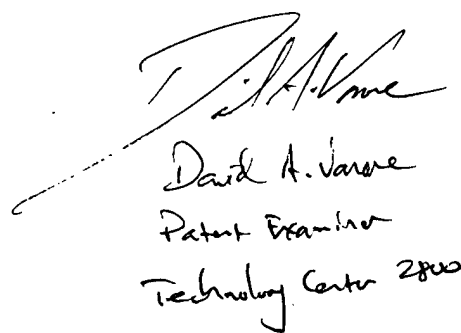 David A. Vanore
David A. Vanore
Patent Examiner
Technology Center 2800